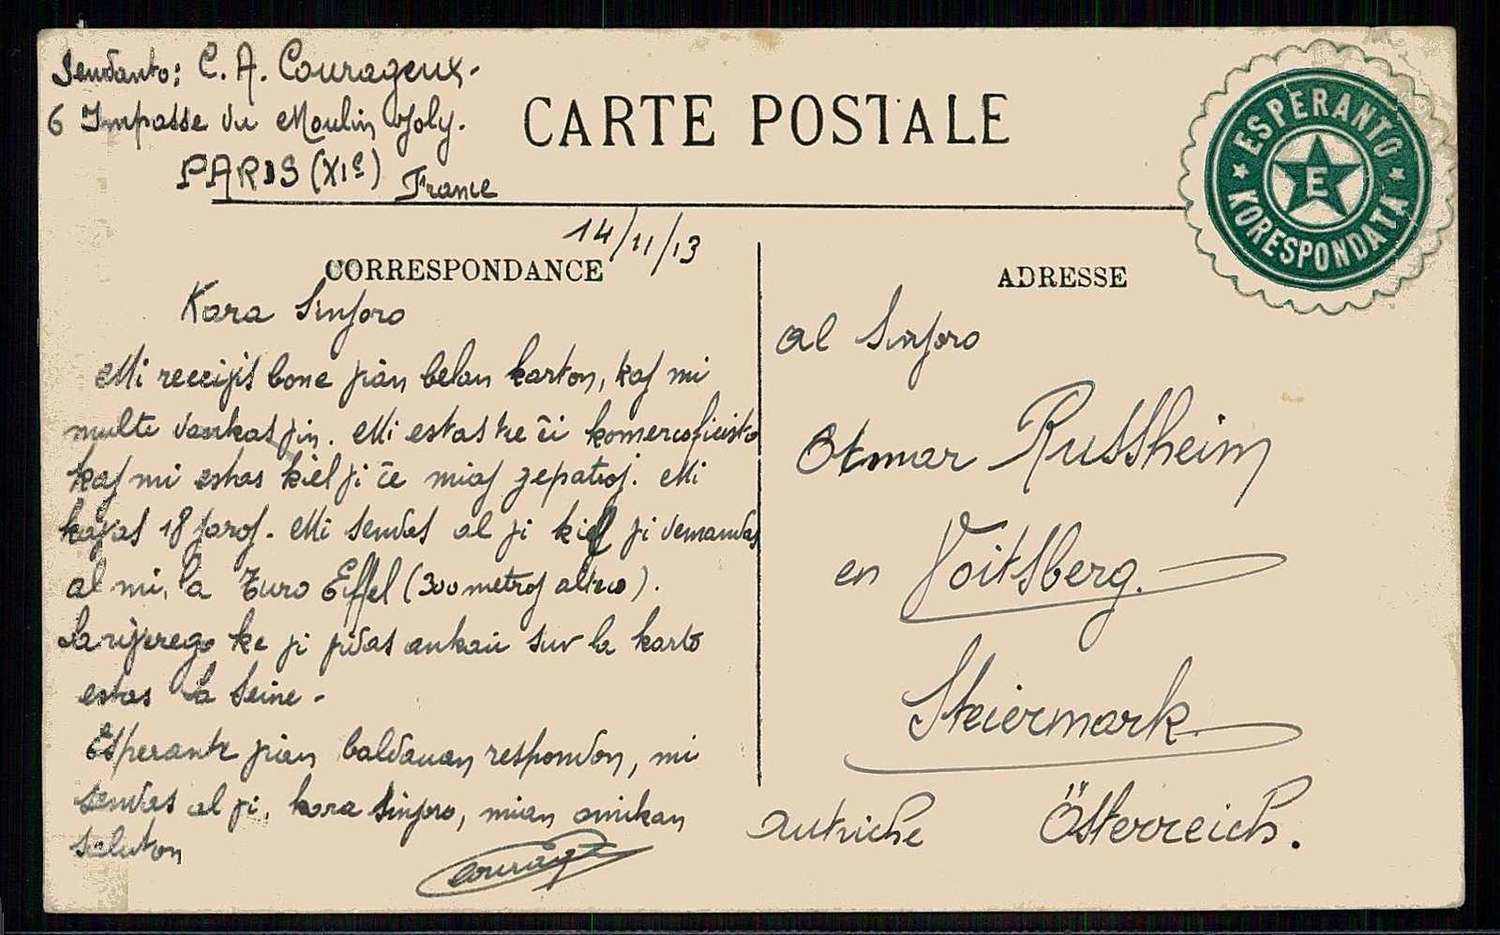 Sendanto: C. A. Courageux.
6 Impasse du Moulin Joly.
PARIS (XIe) France
CARTE POSTALE
ESPERANTO
E
KORESPONDATA
14/11/13
CORRESPONDANCE
ADRESSE
Kara Sinjoro
Mi recevis bone vian belan karton, kaj mi
multe dankas vin. Mi estas tre ĉi
kaj mi estas kiel vi ĉe miaj gepatroj. Mi
18 jaroj. Mi sendas al vi kiel vi demandas
al mi, la Turo Eiffel (300 metroj).
La ke vi vidas ankaŭ sur la karto
estas la Seine -
Esperante vian baldauan respondon, mi
sendas al vi, kara sinjoro, mian amikan
saluton
Courageux
al Sinjoro
Otmar Russheim
en Voitsberg.
Steiermark
Autriche Österreich.